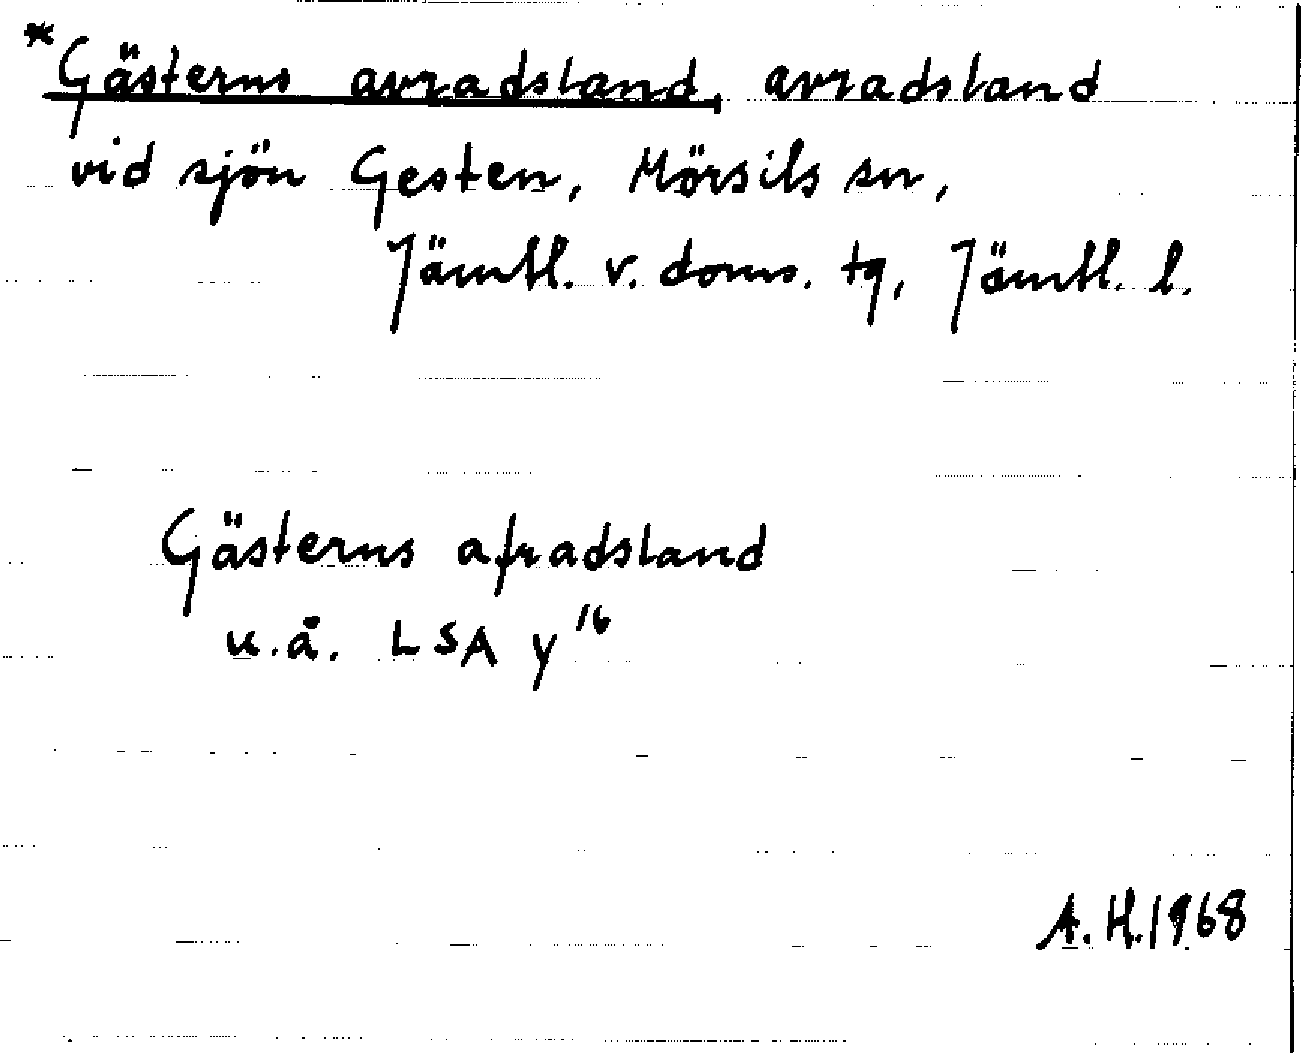 *Gästerns avradsland, avradsland
vid sjön Gesten, Mörsils sn,
Jämtl. v. doms. tg, Jämtl. l.
Gästerns afradsland
u.å. LSA y¹⁶
A.H.1968